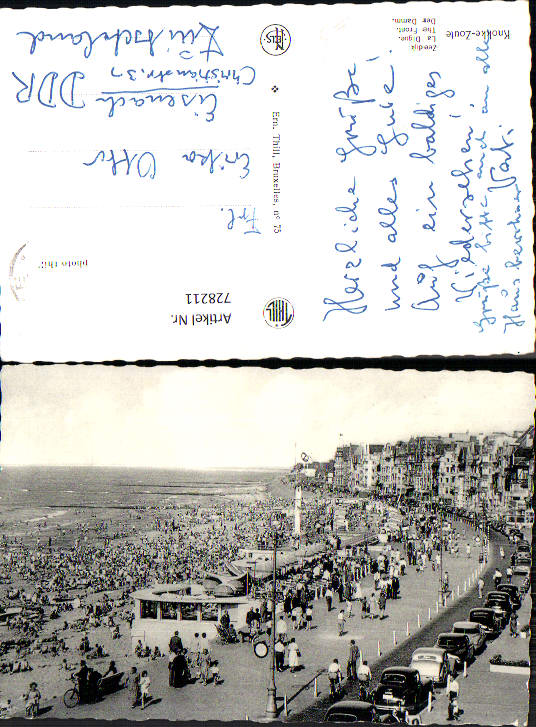 Knokke-Zoute
Zeedijk
La Digue.
The Front.
Der Damm.
Herzliche Grüße
und alles Gute!
Auf ein baldiges
Wiedersehen!
Grüße bitte auch an alle
Hausbewohner
NELS
Ern. Thill, Bruxelles, nº 75
THILL
Frl.
Erika Otto
Eisenach DDR
Christianstr. 37
photo thill
Artikel Nr.
728211